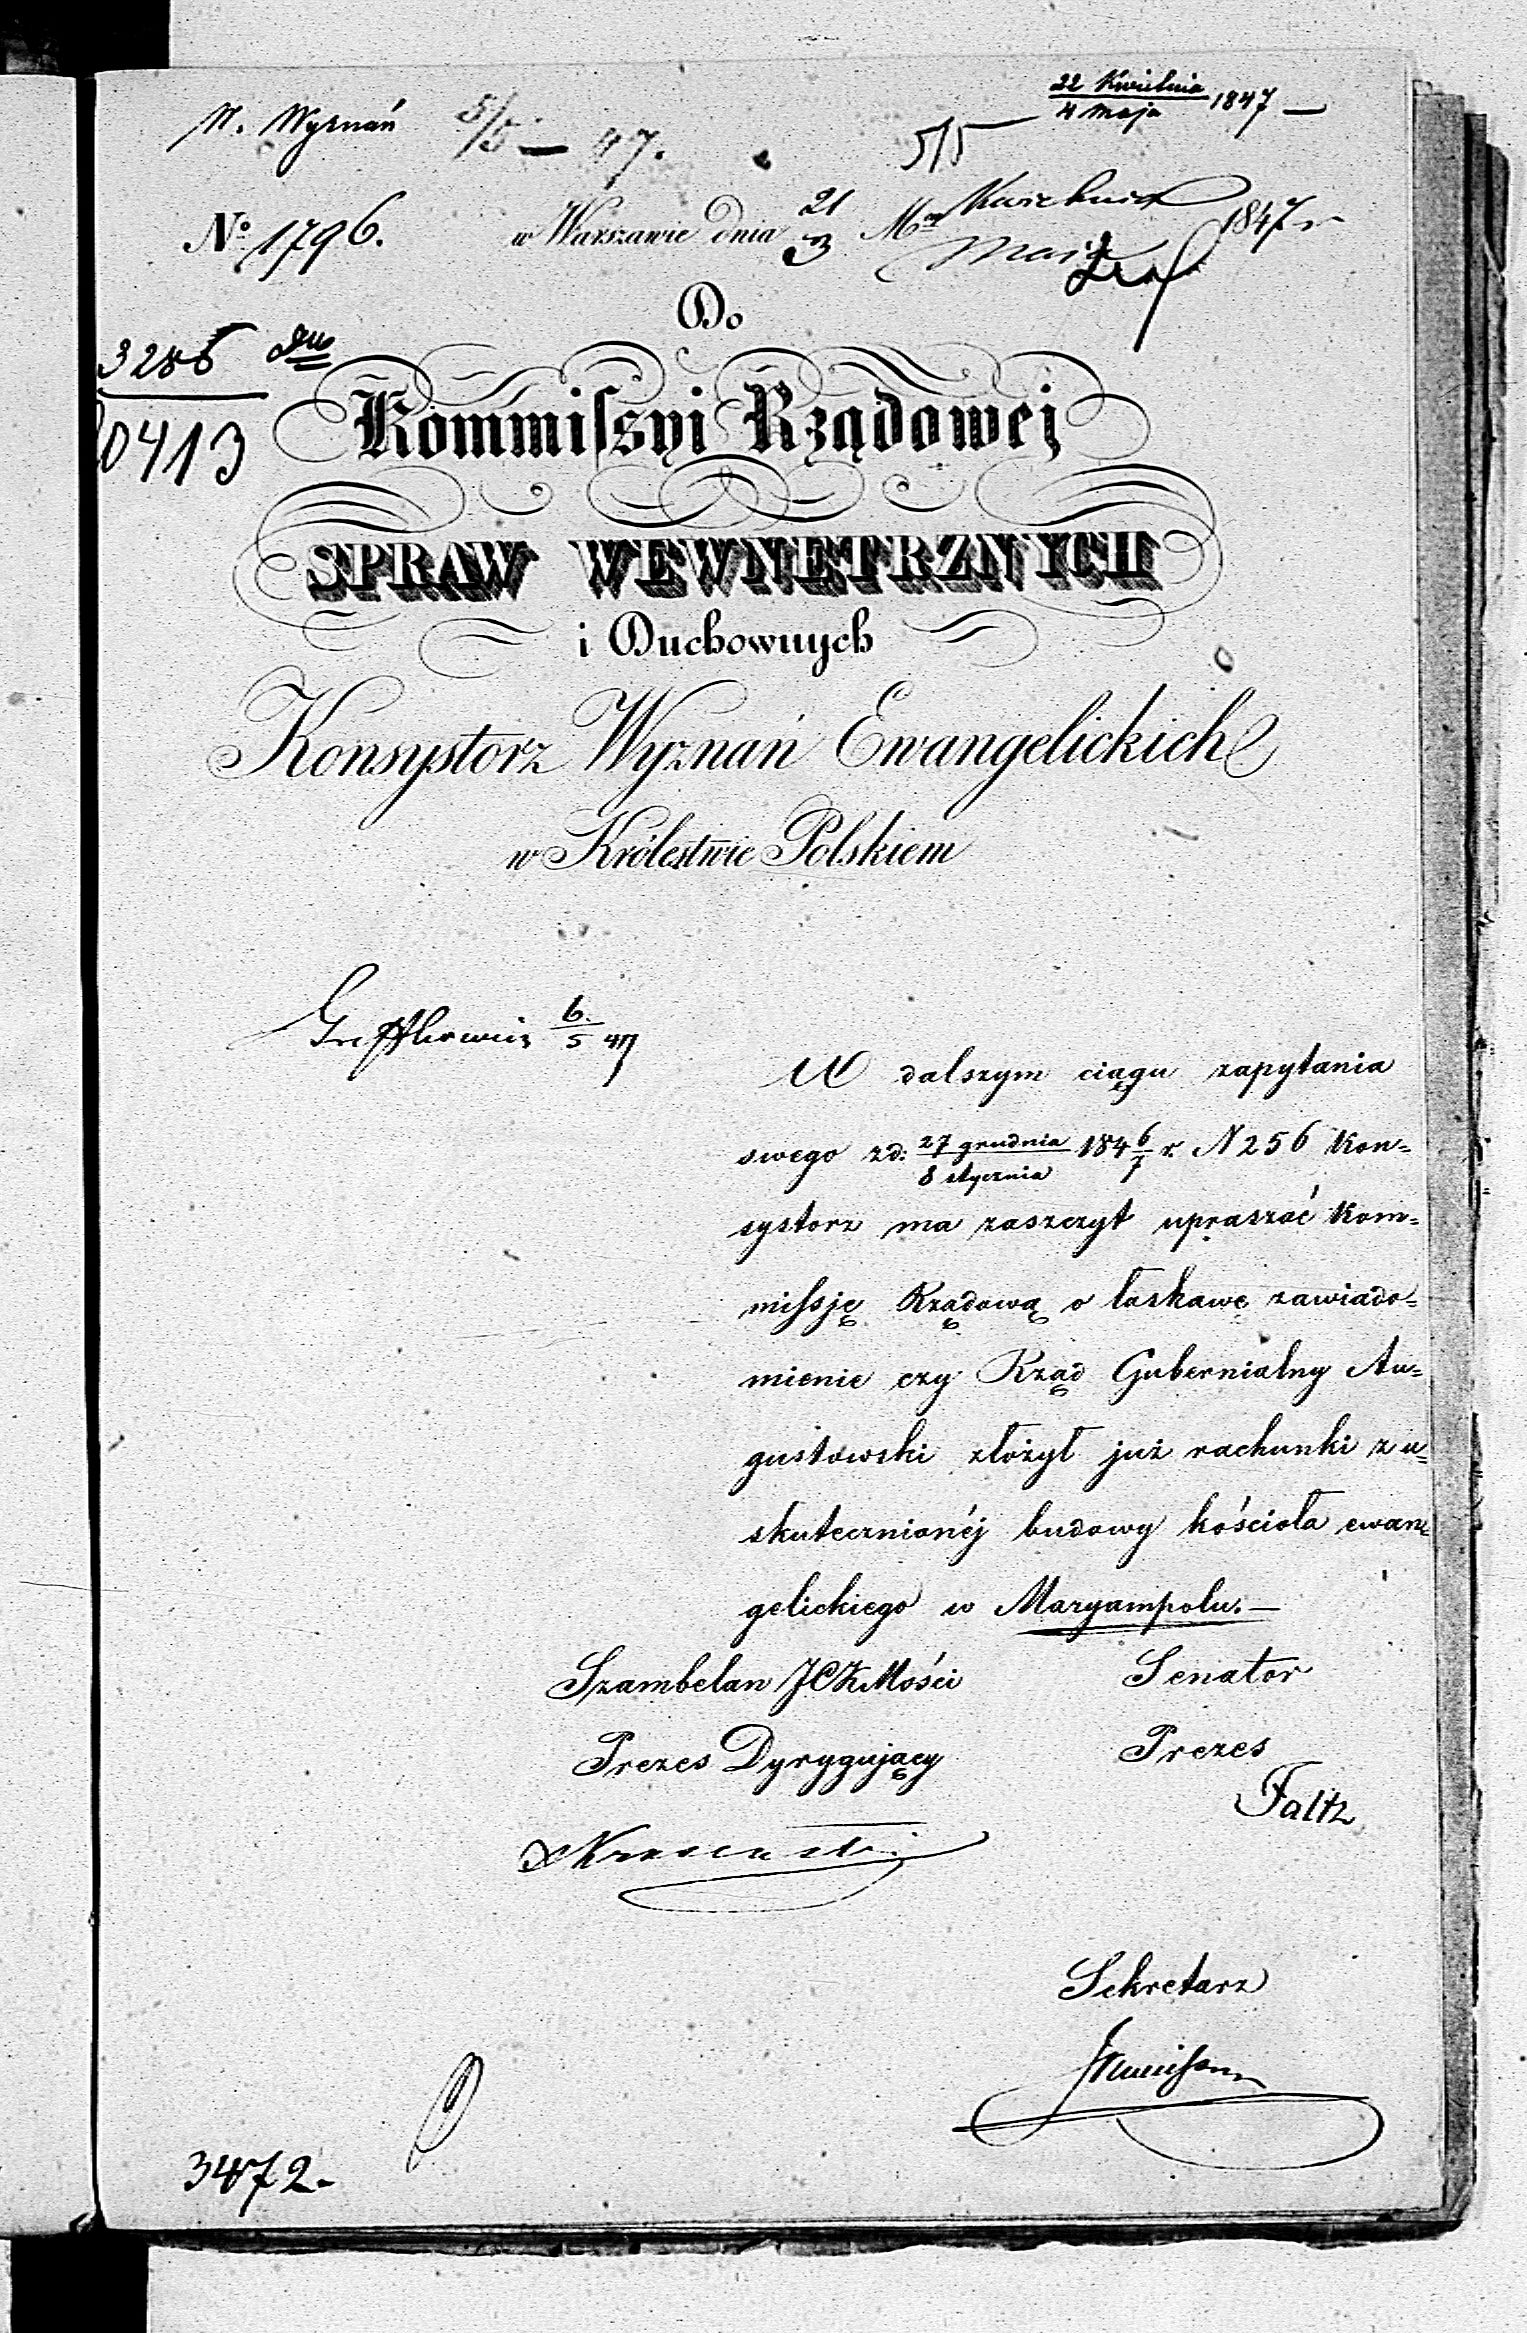 W. Wyznań 5/5 – 47.
22 Kwietnia
4 Maja 1847 –
5/5
No 1796. w Warszawie dnia 21/3 Mca Kwietnia/Maja 1847 r
3286
10413
Do
Kommiſsyi Rządowej
SPRAW WEWNĘTRZNYCH
i Duchownych
Konsystorz Wyznań Ewangelickich
w Królestwie Polskiem
6/5 47
W dalszym ciągu zapytania
swego zd: 27 grudnia/8 stycznia 1846/7 r. N 256 Kon=
systorz ma zaszczyt upraszać Kom=
miſsję Rządową o łaskawe zawiado=
mienie czy Rząd Gubernialny Au=
gustowski złożył już rachunki z u=
skutecznionéj budowy kościoła ewan=
gelickiego w Maryampolu. –
Szambelan JCKMości Senator
Prezes Dyrygujący Prezes
Faltz
Krusenstern
Sekretarz
3472.